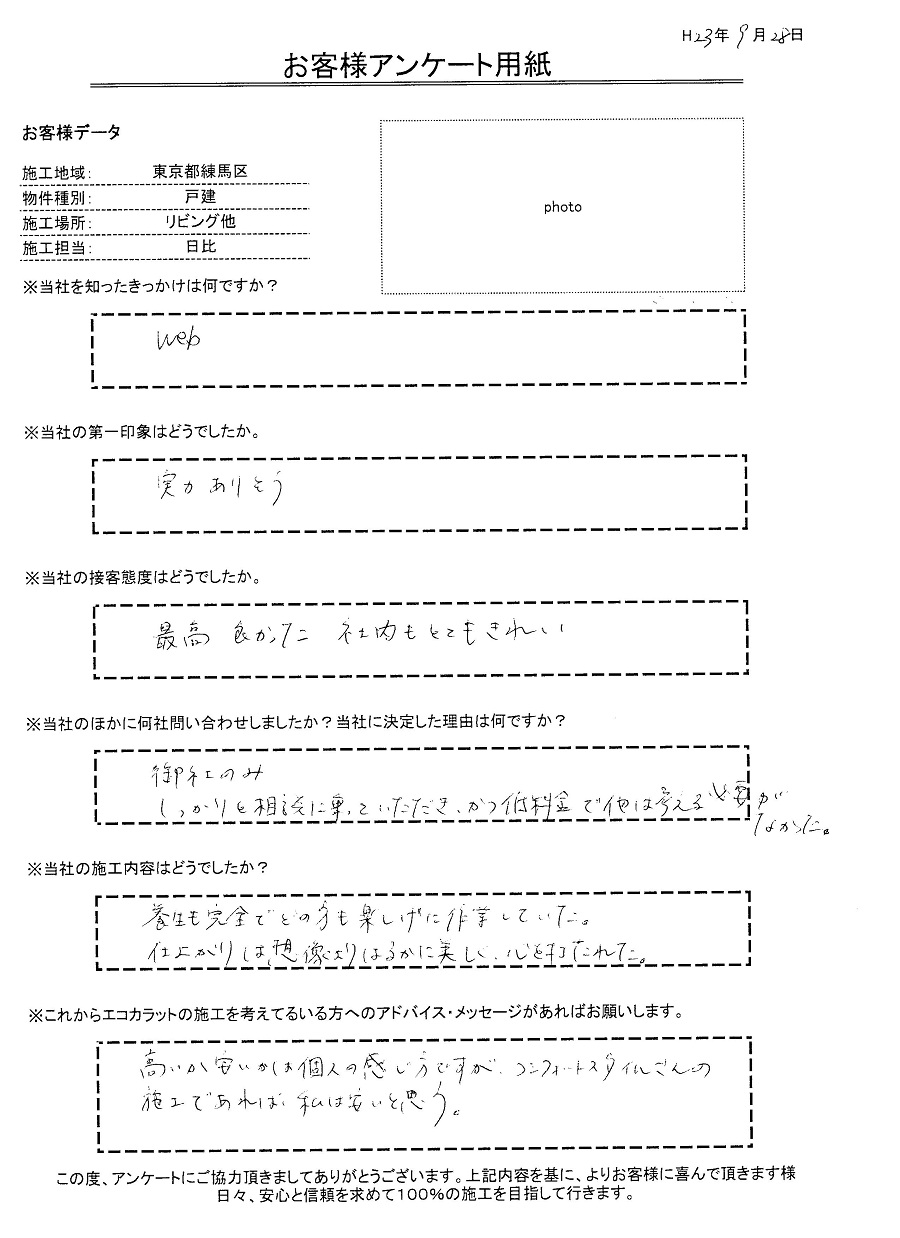 H23年9月28日
お客様アンケート用紙
お客様データ
施工地域: 東京都練馬区
物件種別: 戸建
施工場所: リビング他
施工担当: 日比
photo
※当社を知ったきっかけは何ですか？
web
※当社の第一印象はどうでしたか。
実力ありそう
※当社の接客態度はどうでしたか。
最高 良かった 社内もとてもきれい
※当社のほかに何社問い合わせしましたか？当社に決定した理由は何ですか？
御社のみ
しっかりと相談に乗っていただき、かつ低料金で他は考える必要が
なかった。
※当社の施工内容はどうでしたか？
養生も完全でどの方も楽しげに作業していた。
仕上がりは想像よりはるかに美しく、心を打たれた。
※これからエコカラットの施工を考えてるいる方へのアドバイス・メッセージがあればお願いします。
高いか安いかは個人の感じ方ですが、コンフォートスタイルさんの
施工であれば、私は安いと思う。
この度、アンケートにご協力頂きましてありがとうございます。上記内容を基に、よりお客様に喜んで頂きます様
日々、安心と信頼を求めて100%の施工を目指して行きます。